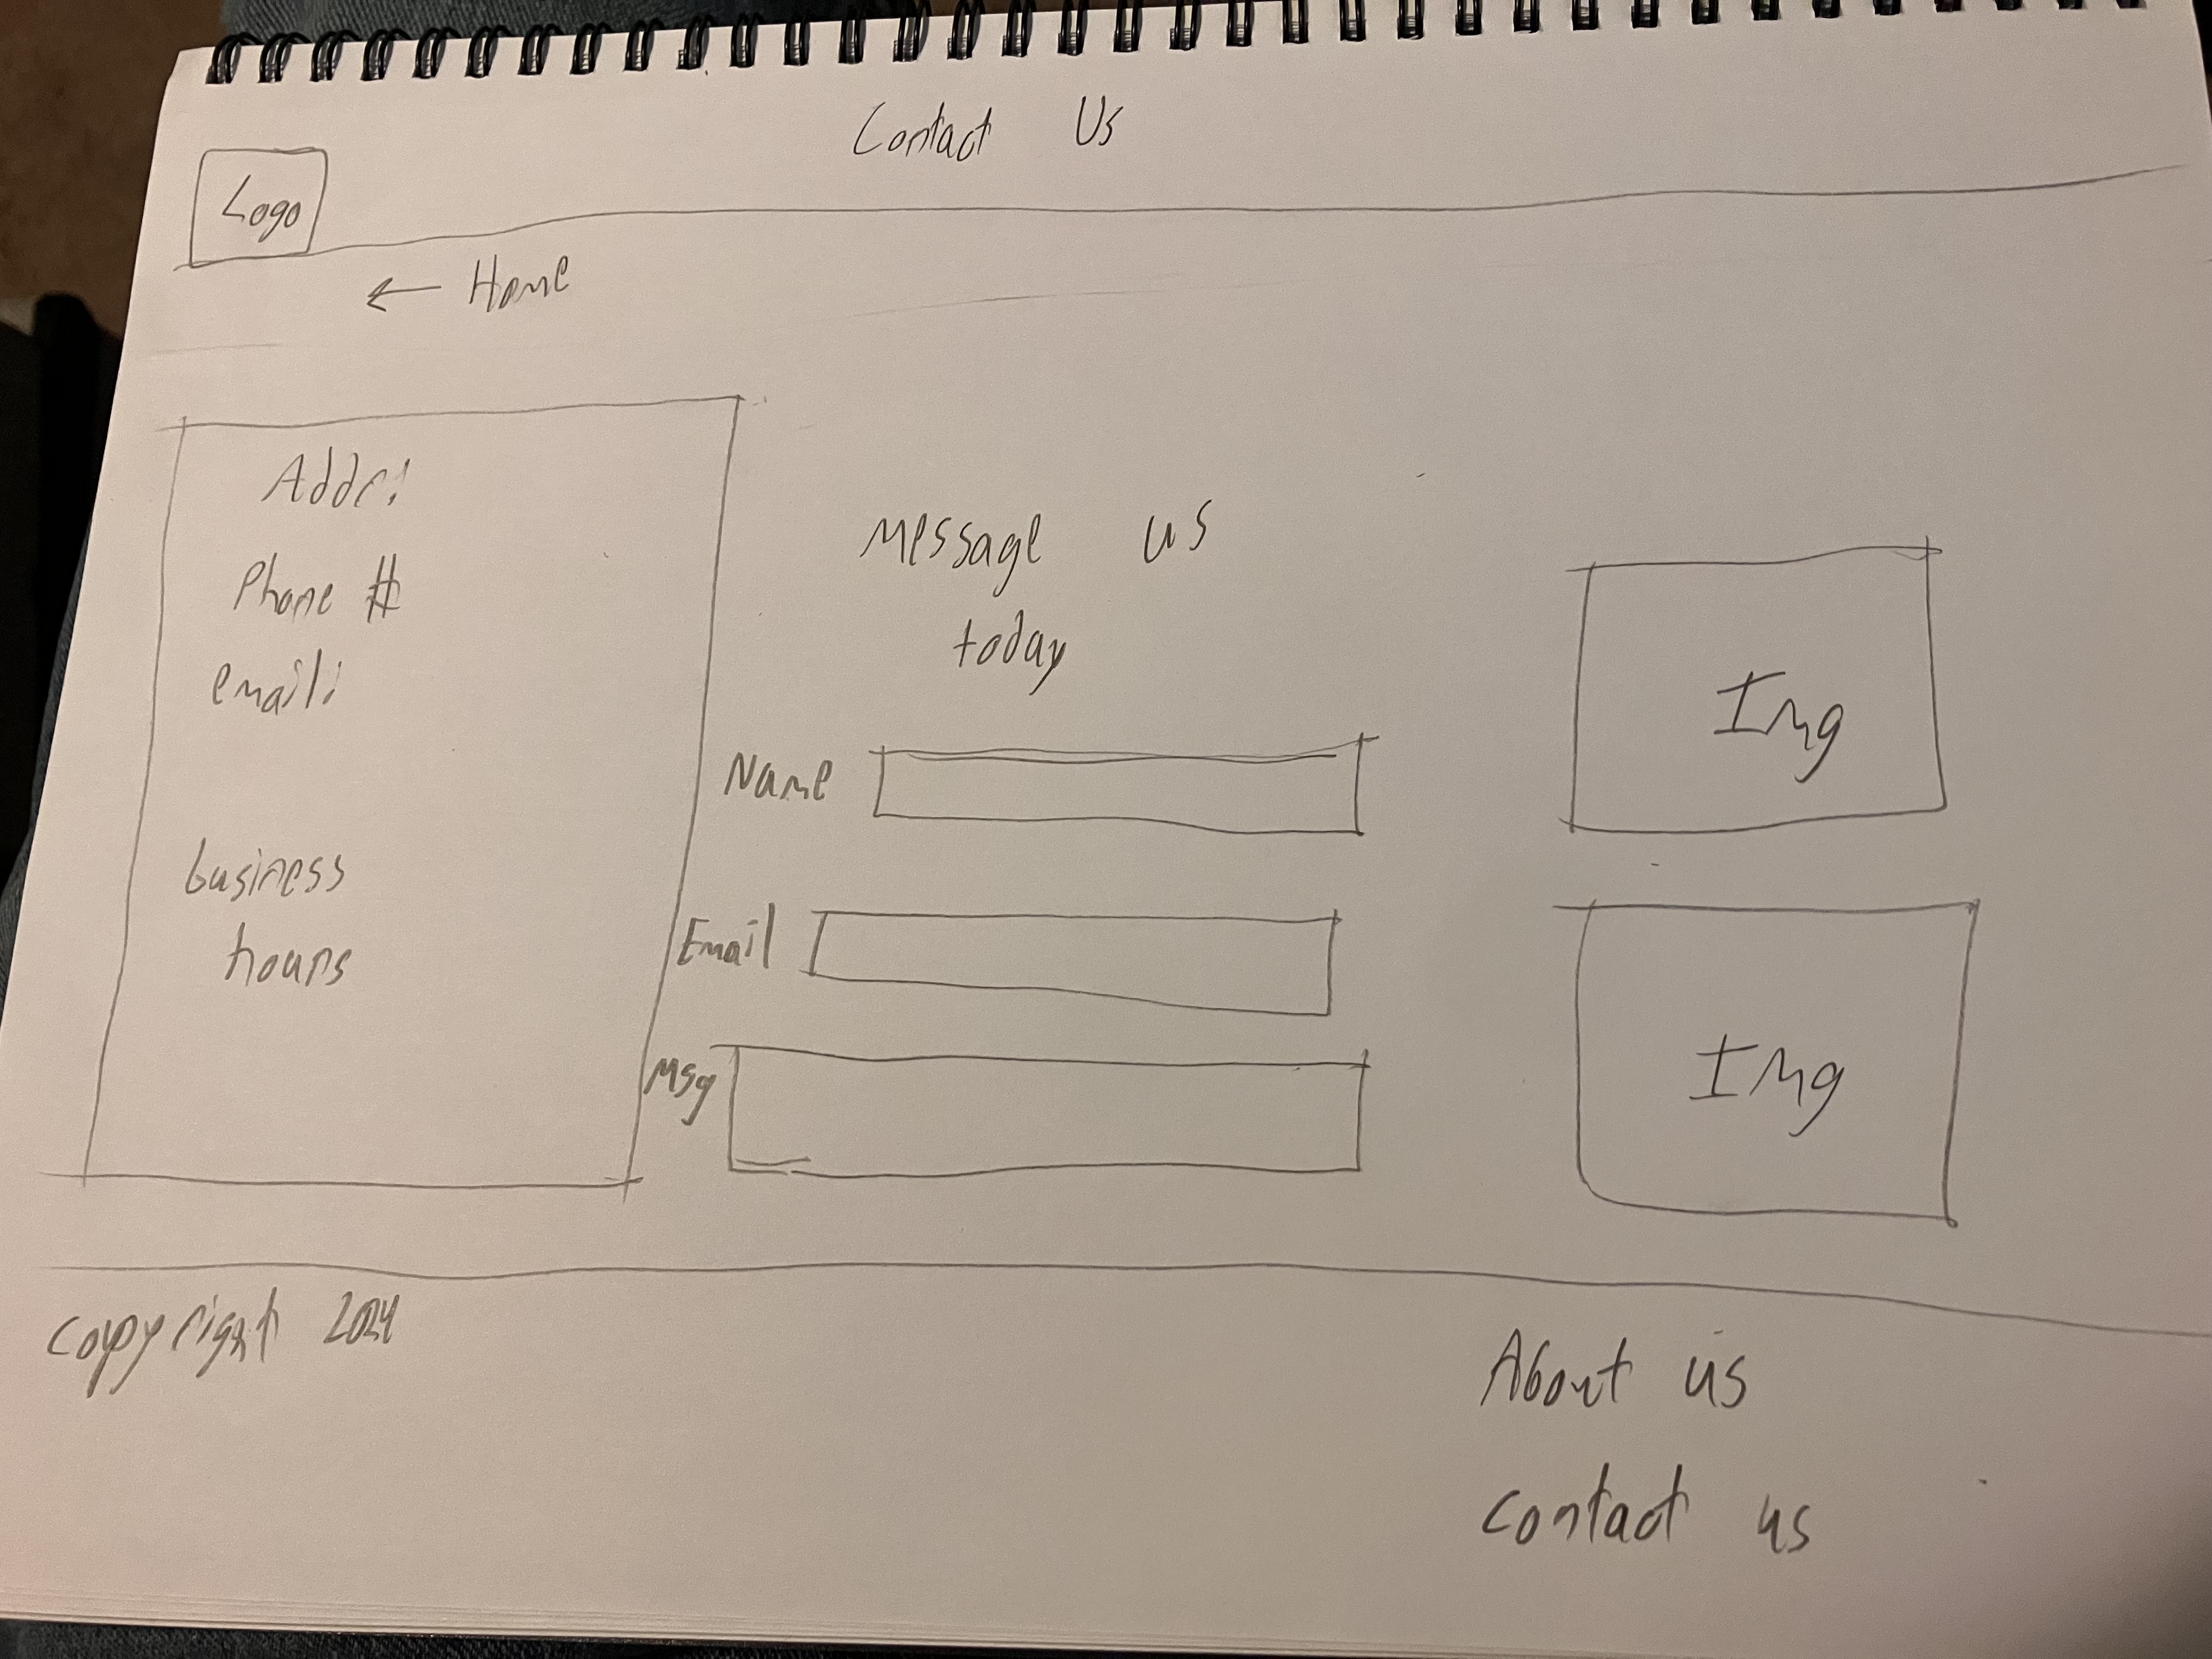 Contact Us
Logo
← Home
Addr:
Phone #
email:
business
hours
Message us
today
Name
Email
Msg
Img
Img
Copyright 2024
About us
Contact us